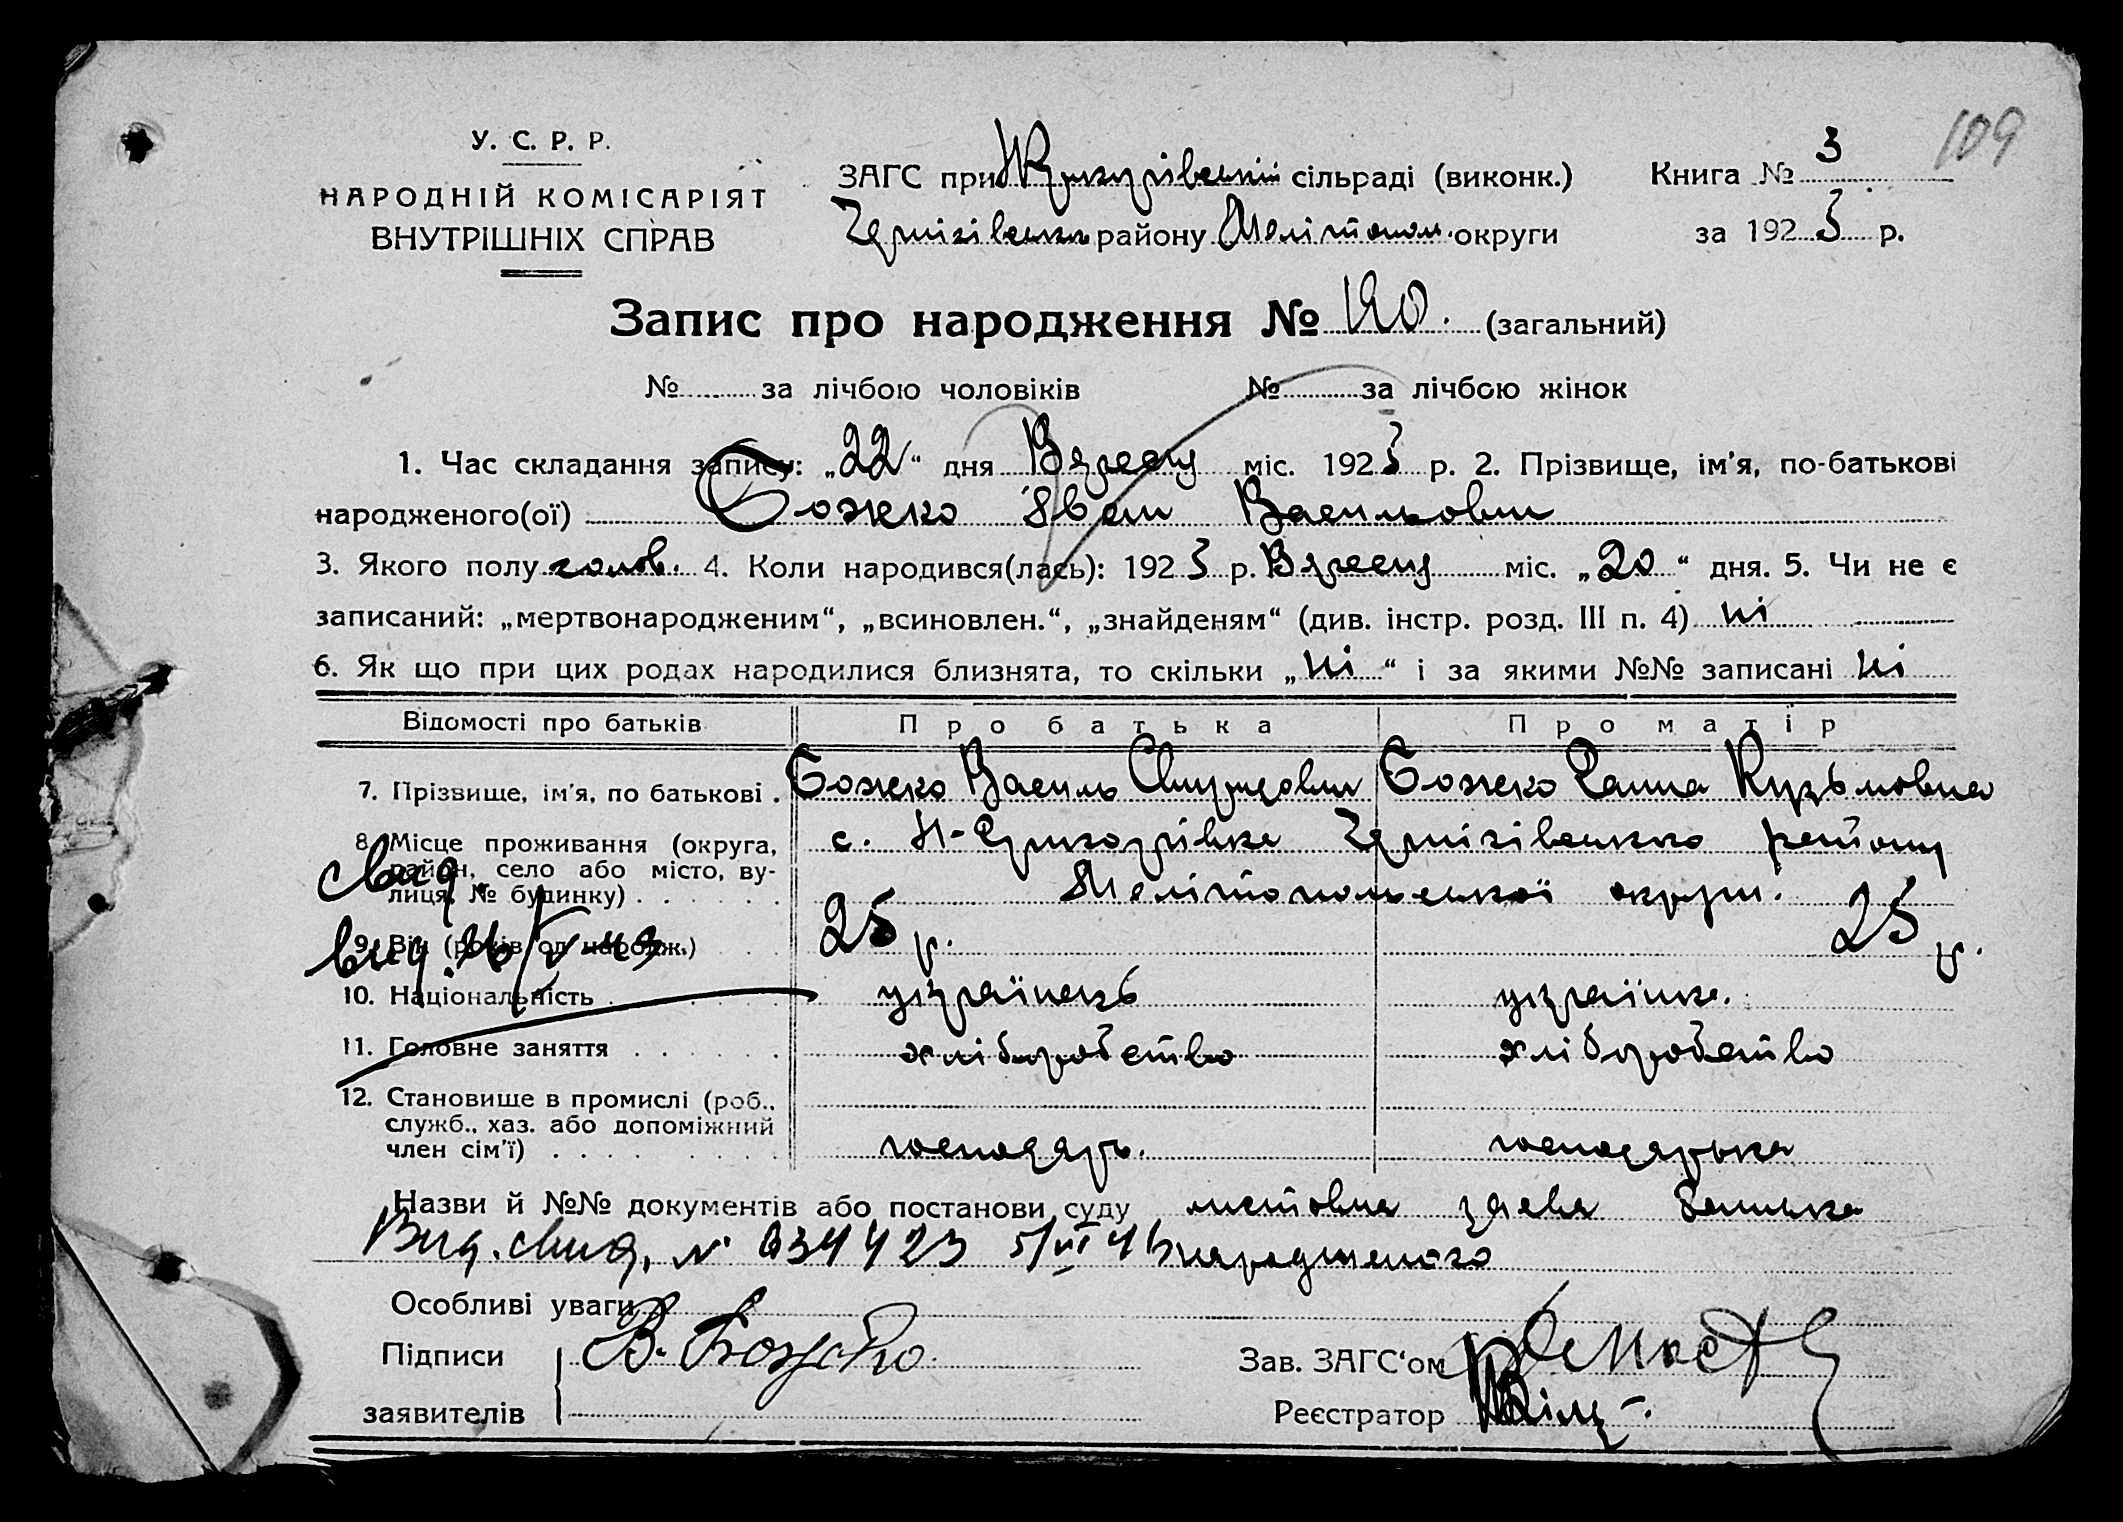 109
У. С. Р. Р.
НАРОДНІЙ КОМІСАРІЯТ
ВНУТРІШНІХ СПРАВ
ЗАГС при сільраді (виконк.)
Чернігівськ району Мелітопол. округи
Книга № 3
за 1923 р.
Запис про народження № 120. (загальний)
№ за лічбою чоловіків № за лічбою жінок
1. Час складання запису: „22“ дня Вересня міс. 1923 р. 2. Прізвище, ім'я, по-батькові
народженого(ої) Божко Іван Васильович
3. Якого полу чолов. 4. Коли народився(лась): 1923 р. Вересня міс. „20“ дня. 5. Чи не є
записаний: „мертвонародженим“, „всиновлен.“, „знайденям“ (див. інстр. розд. III п. 4) ні
6. Як що при цих родах народилися близнята, то скільки „ні“ і за якими №№ записані ні
Відомості про батьків Про батька Про матір
7. Прізвище, ім'я, по батькові . Божко Василь Божко Ганна Кузьмовна
8. Місце проживання (округа, район, село або місто, вулиця, № будинку) с. Н-Григорівка Чернігівського району
Мелітопольської округи.
свид.
вид.
9. Вік (років од народж.) 25 р. 25 р.
10. Національність українець українка.
11. Головне заняття хліборобство хліборобство
12. Становище в промислі (роб.,
служб., хаз. або допоміжний
член сім'ї) господарь. господарька
Назви й №№ документів або постанови суду заява батька
Вид. свид. № 434423 5/VI 46 народженого
Особливі уваги
Підписи В. Божко Зав. ЗАГС'ом
заявителів Реєстратор